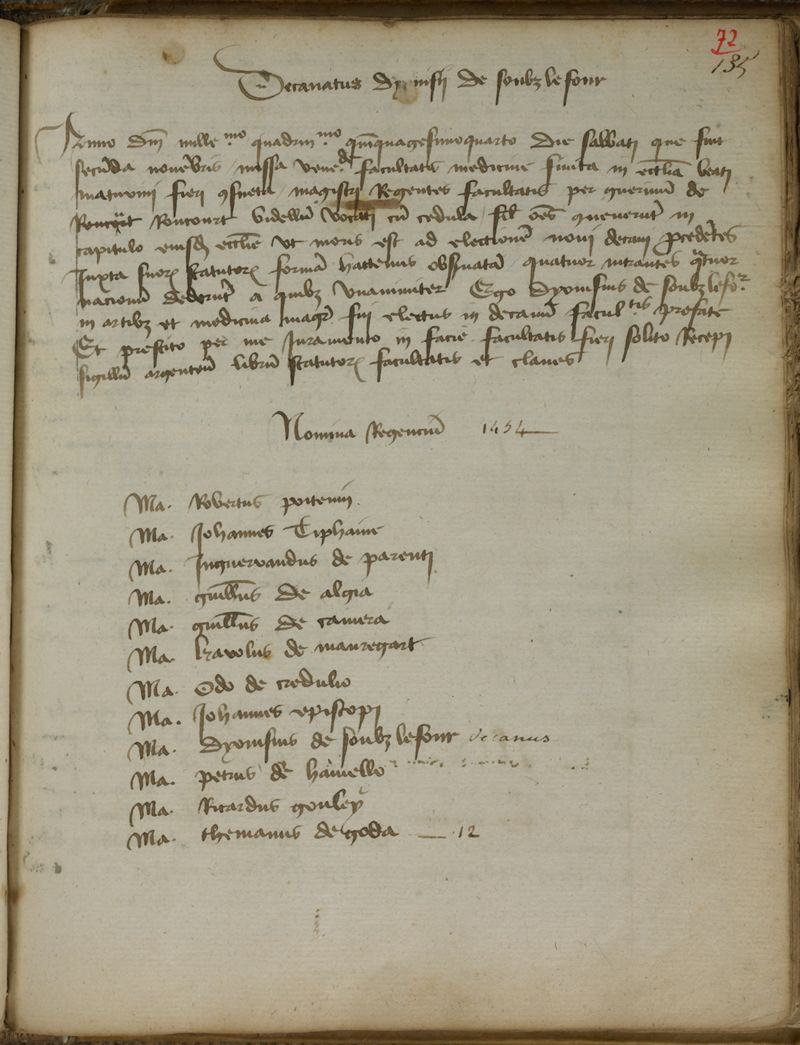 72
135
Decanatus dyonisii de soubz le four
Anno dni mille.mo quadrin.mo quiquagesimoquarto die sabbati que fuit
secuda nouebris missa vene.de facultatis medicine finita in ecclia beati
maturini fieri gsueta magistri Regentes facultatis per guerinu de
Roncourt bidellu vocati cu cedula oes guenerut in
capitulo eiusd ecclie vt moris est ad electione noui decani procedetes
Iuxta suor statutor forma hactenus obseruata quatuor intrantes quatuor
nacionu dederut a quibz vnanimiter Ego dyonisius de soubz le for
in artibz et medicina magr fui electus in decanu facul.tis prefate
Et prestito per me Iuramento in facie facultatis fieri solito Recepi
sigillu argenteu libru statutor facultatis et claues
Nomina Regenciu 1454
Ma. Robertus poiteuin
Ma. Johannes Tiphaine
Ma. Inguerrandus de parenti
Ma. guillus de algia
Ma. guillus de camera
Ma. karolus de mauregart
Ma. Odo de credulio
Ma. Johannes episcopi
Ma. dyonisius de soubz le four decanus
Ma. petrus de
Ma. Ricardus gouley
Ma. themanus de goda — 12